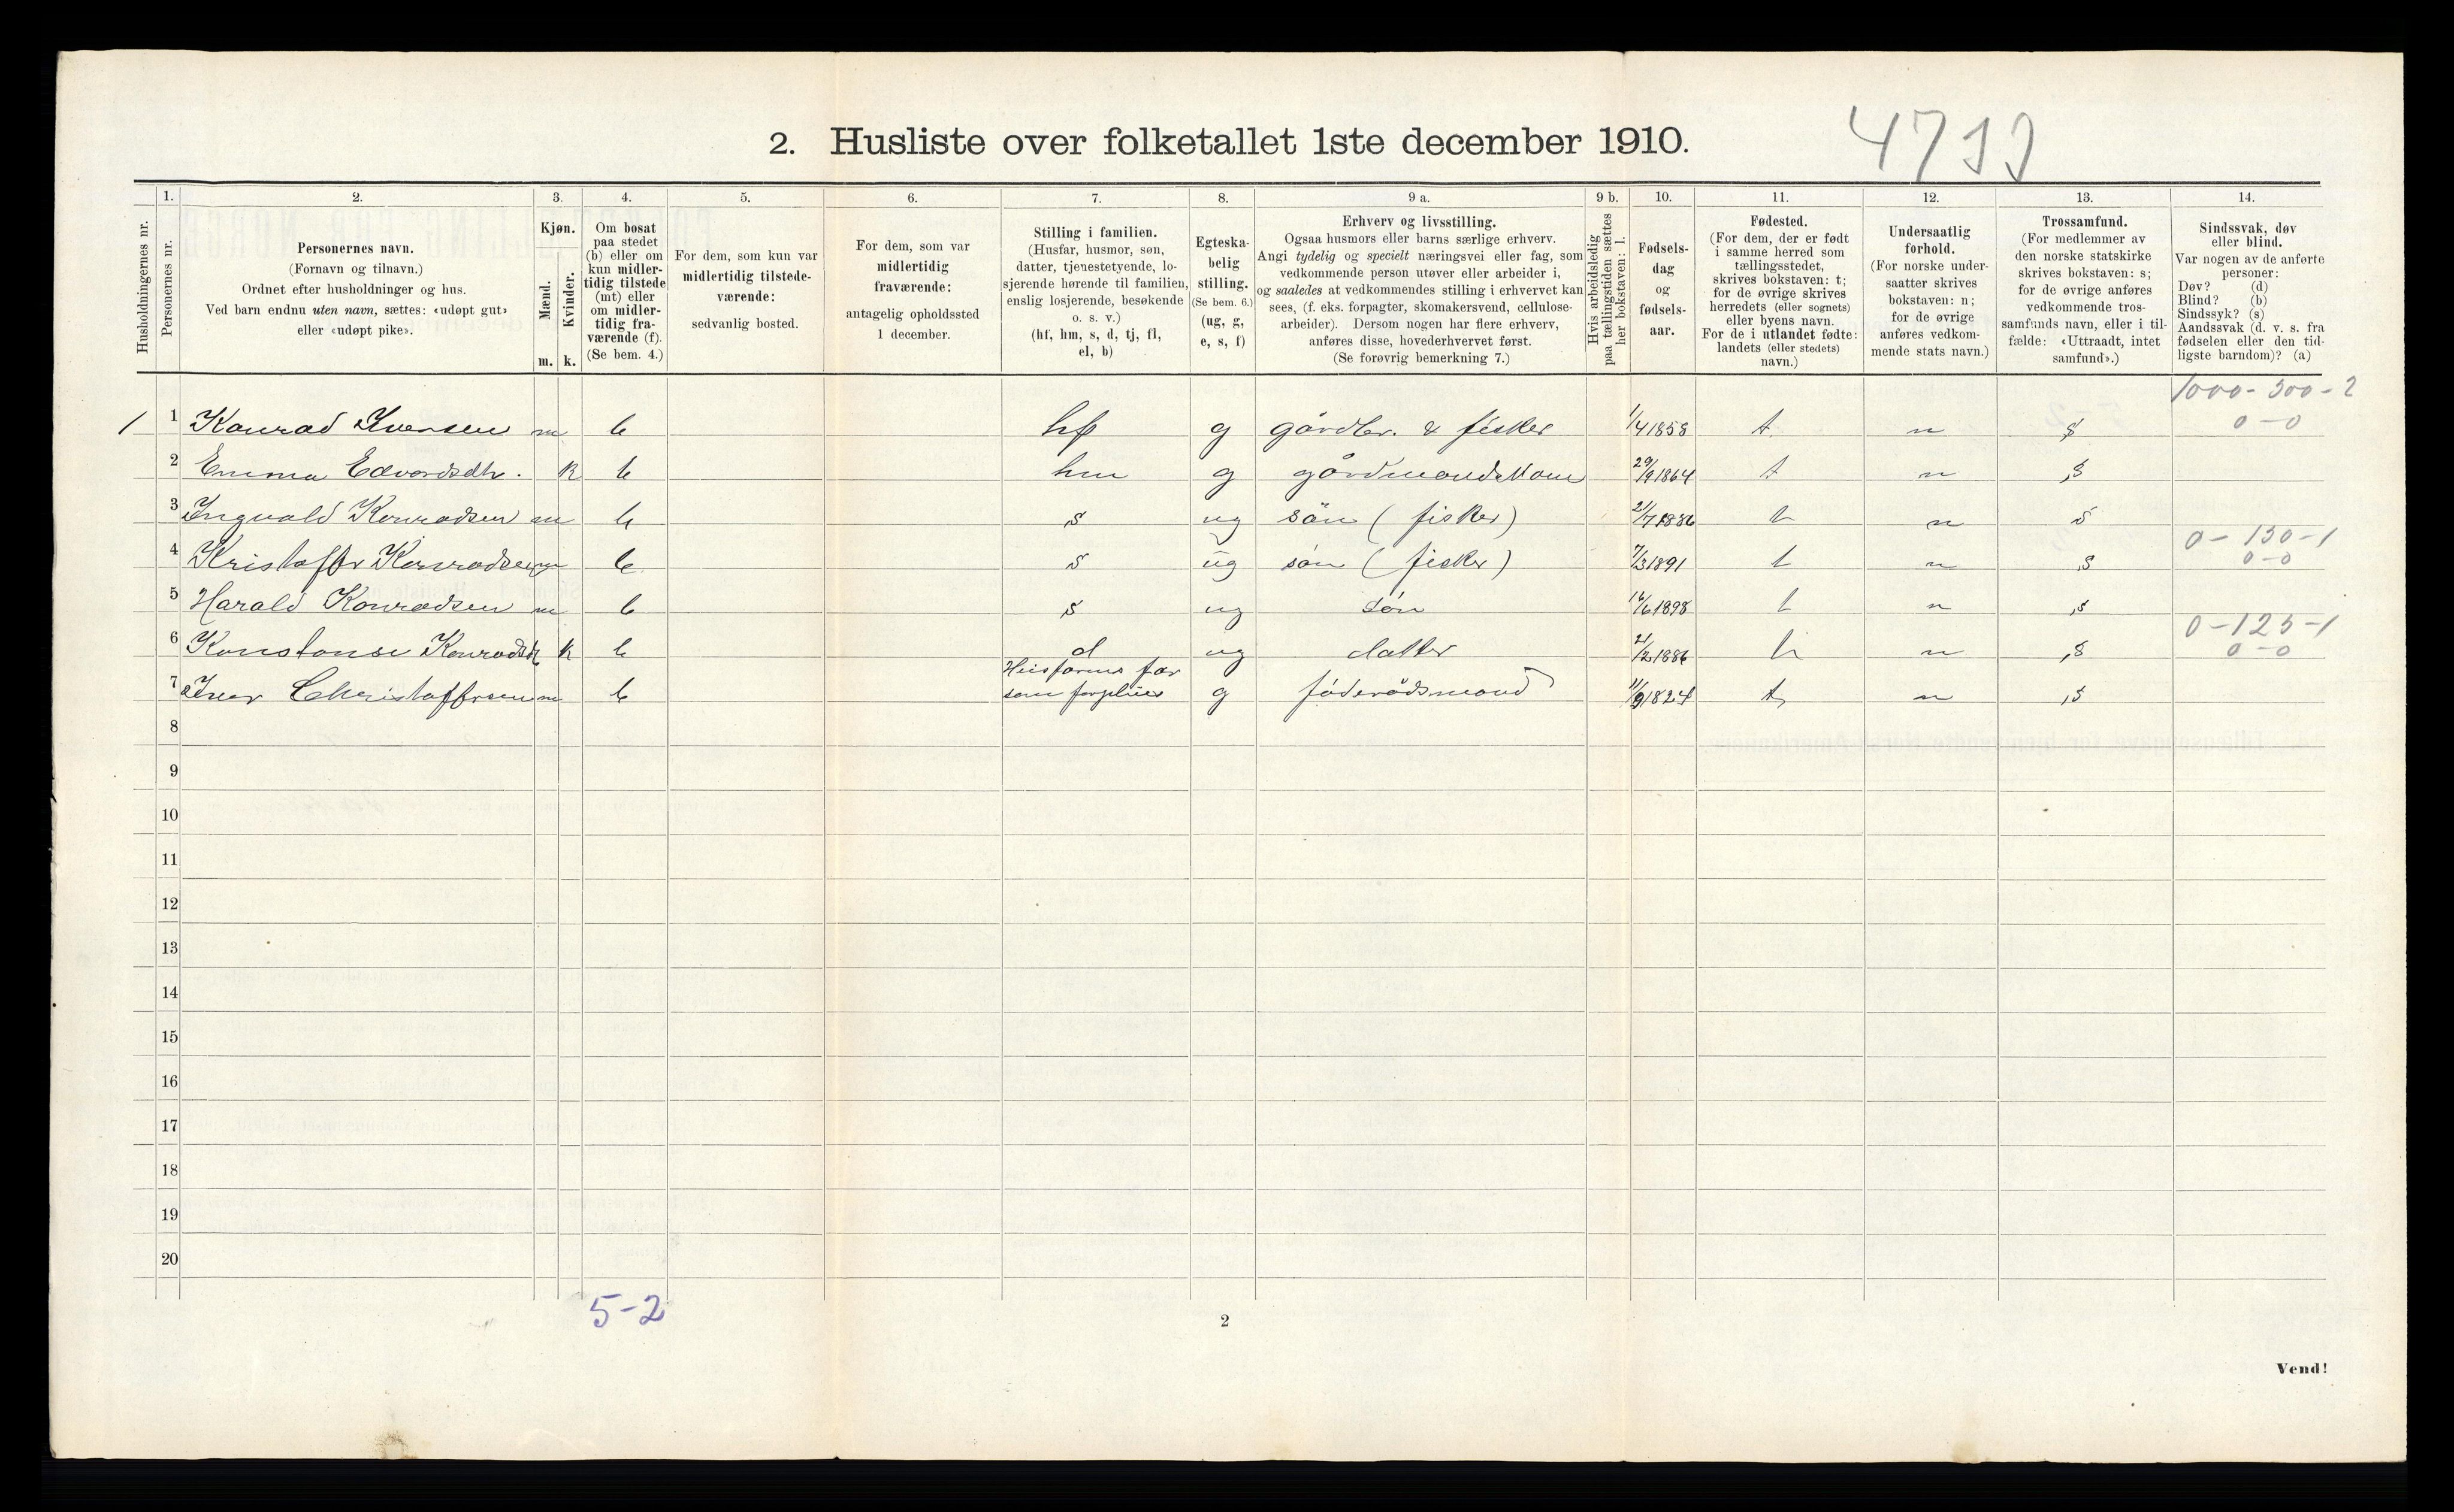 2. Husliste over folketallet 1ste december 1910.
Husholdningernes nr.
1.
Personernes nr.
2.
Personernes navn.
(Fornavn og tilnavn.)
Ordnet efter husholdninger og hus.
Ved barn endnu uten navn, sættes: «udøpt gut»
eller «udøpt pike».
3.
Kjøn.
Mænd.
m.
Kvinder.
k.
4.
Om bosat
paa stedet
(b) eller om
kun midler-
tidig tilstede
(mt) eller
om midler-
tidig fra-
værende (f).
(Se bem. 4.)
5.
For dem, som kun var
midlertidig tilstede-
værende:
sedvanlig bosted.
6.
For dem, som var
midlertidig
fraværende:
antagelig opholdssted
1 december.
7.
Stilling i familien.
(Husfar, husmor, søn,
datter, tjenestetyende, lo-
sjerende hørende til familien,
enslig losjerende, besøkende
o. s. v.)
(hf, hm, s, d, tj, fl,
el, b)
8.
Egteska-
belig
stilling.
(Se bem. 6.)
(ug, g,
e, s, f)
9 a.
Erhverv og livsstilling.
Ogsaa husmors eller barns særlige erhverv.
Angi tydelig og specielt næringsvei eller fag, som
vedkommende person utøver eller arbeider i,
og saaledes at vedkommendes stilling i erhvervet kan
sees, (f. eks. forpagter, skomakersvend, cellulose-
arbeider). Dersom nogen har flere erhverv,
anføres disse, hovederhvervet først.
(Se forøvrig bemerkning 7.)
9 b.
Hvis arbeidsledig
paa tællingstiden sættes
her bokstaven: l.
10.
Fødsels-
dag
og
fødsels-
aar.
11.
Fødested.
(For dem, der er født
i samme herred som
tællingsstedet,
skrives bokstaven: t;
for de øvrige skrives
herredets (eller sognets)
eller byens navn.
For de i utlandet fødte:
landets (eller stedets)
navn.)
12.
Undersaatlig
forhold.
(For norske under-
saatter skrives
bokstaven: n;
for de øvrige
anføres vedkom-
mende stats navn.)
13.
Trossamfund.
(For medlemmer av
den norske statskirke
skrives bokstaven: s;
for de øvrige anføres
vedkommende tros-
samfunds navn, eller i til-
fælde: «Uttraadt, intet
samfund».)
14.
Sindssvak, døv
eller blind.
Var nogen av de anførte
personer:
Døv? (d)
Blind? (b)
Sindssyk? (s)
Aandssvak (d. v. s. fra
fødselen eller den tid-
ligste barndom)? (a)
1000-300-2
1 1 Konrad Iversen m b hf g gårdbr. & fisker 1/4 1858 t n s 0-0
2 Emma Edvardsdtr. k b hm g gårdmandskone 29/9 1864 t n s
3 Ingvald Konradsen m b s ug sön (fisker) 21/7 1886 t n s
0-130-1
4 Kristoffr Konradsen m b s ug søn (fisker) 7/3 1891 t n s 0-0
5 Harald Konradsen m b s ug søn 16/6 1898 t n s
0-125-1
6 Konstanse Konradsd k b d ug datter 21/2 1886 t n s 0-0
Husfarens far
7 Iver Christoffrsen m b som forpleies g föderådsmand 11/9 1824 t n s
8
9
10
11
12
13
14
15
16
17
18
19
20
5-2
2
Vend!